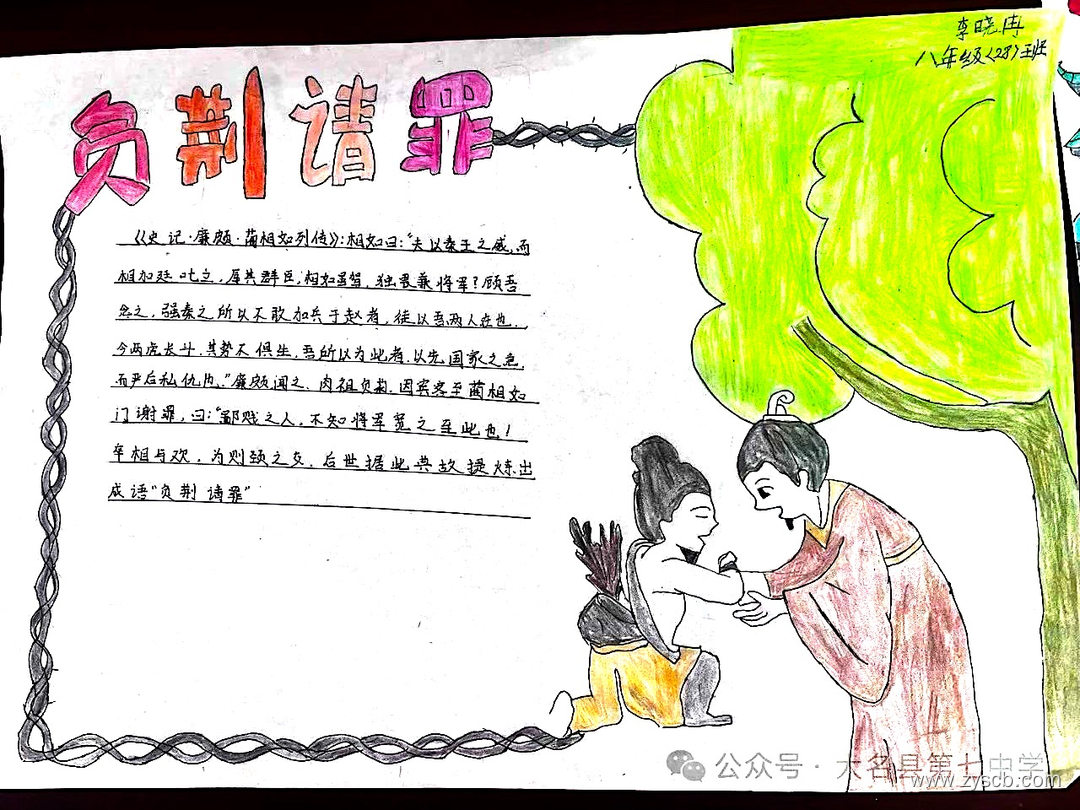 李晓冉
八年级(28)班
负荆请罪
《史记·廉颇·蔺相如列传》:相如曰:"夫以秦王之威,而
相如廷叱之,辱其群臣,相如虽驽,独畏廉将军?顾吾
念之,强秦之所以不敢加兵于赵者,徒以吾两人在也.
今两虎长斗,其势不俱生,吾所以为此者,以先国家之急,
而严后私仇也."廉颇闻之,肉袒负荆,因宾客至蔺相如
门谢罪,曰:"鄙贱之人,不知将军宽之至此也!
卒相与欢,为刎颈之交,后世据此典故提炼出
成语"负荆请罪"
公众号·大名县第七中学
www.zyscb.com